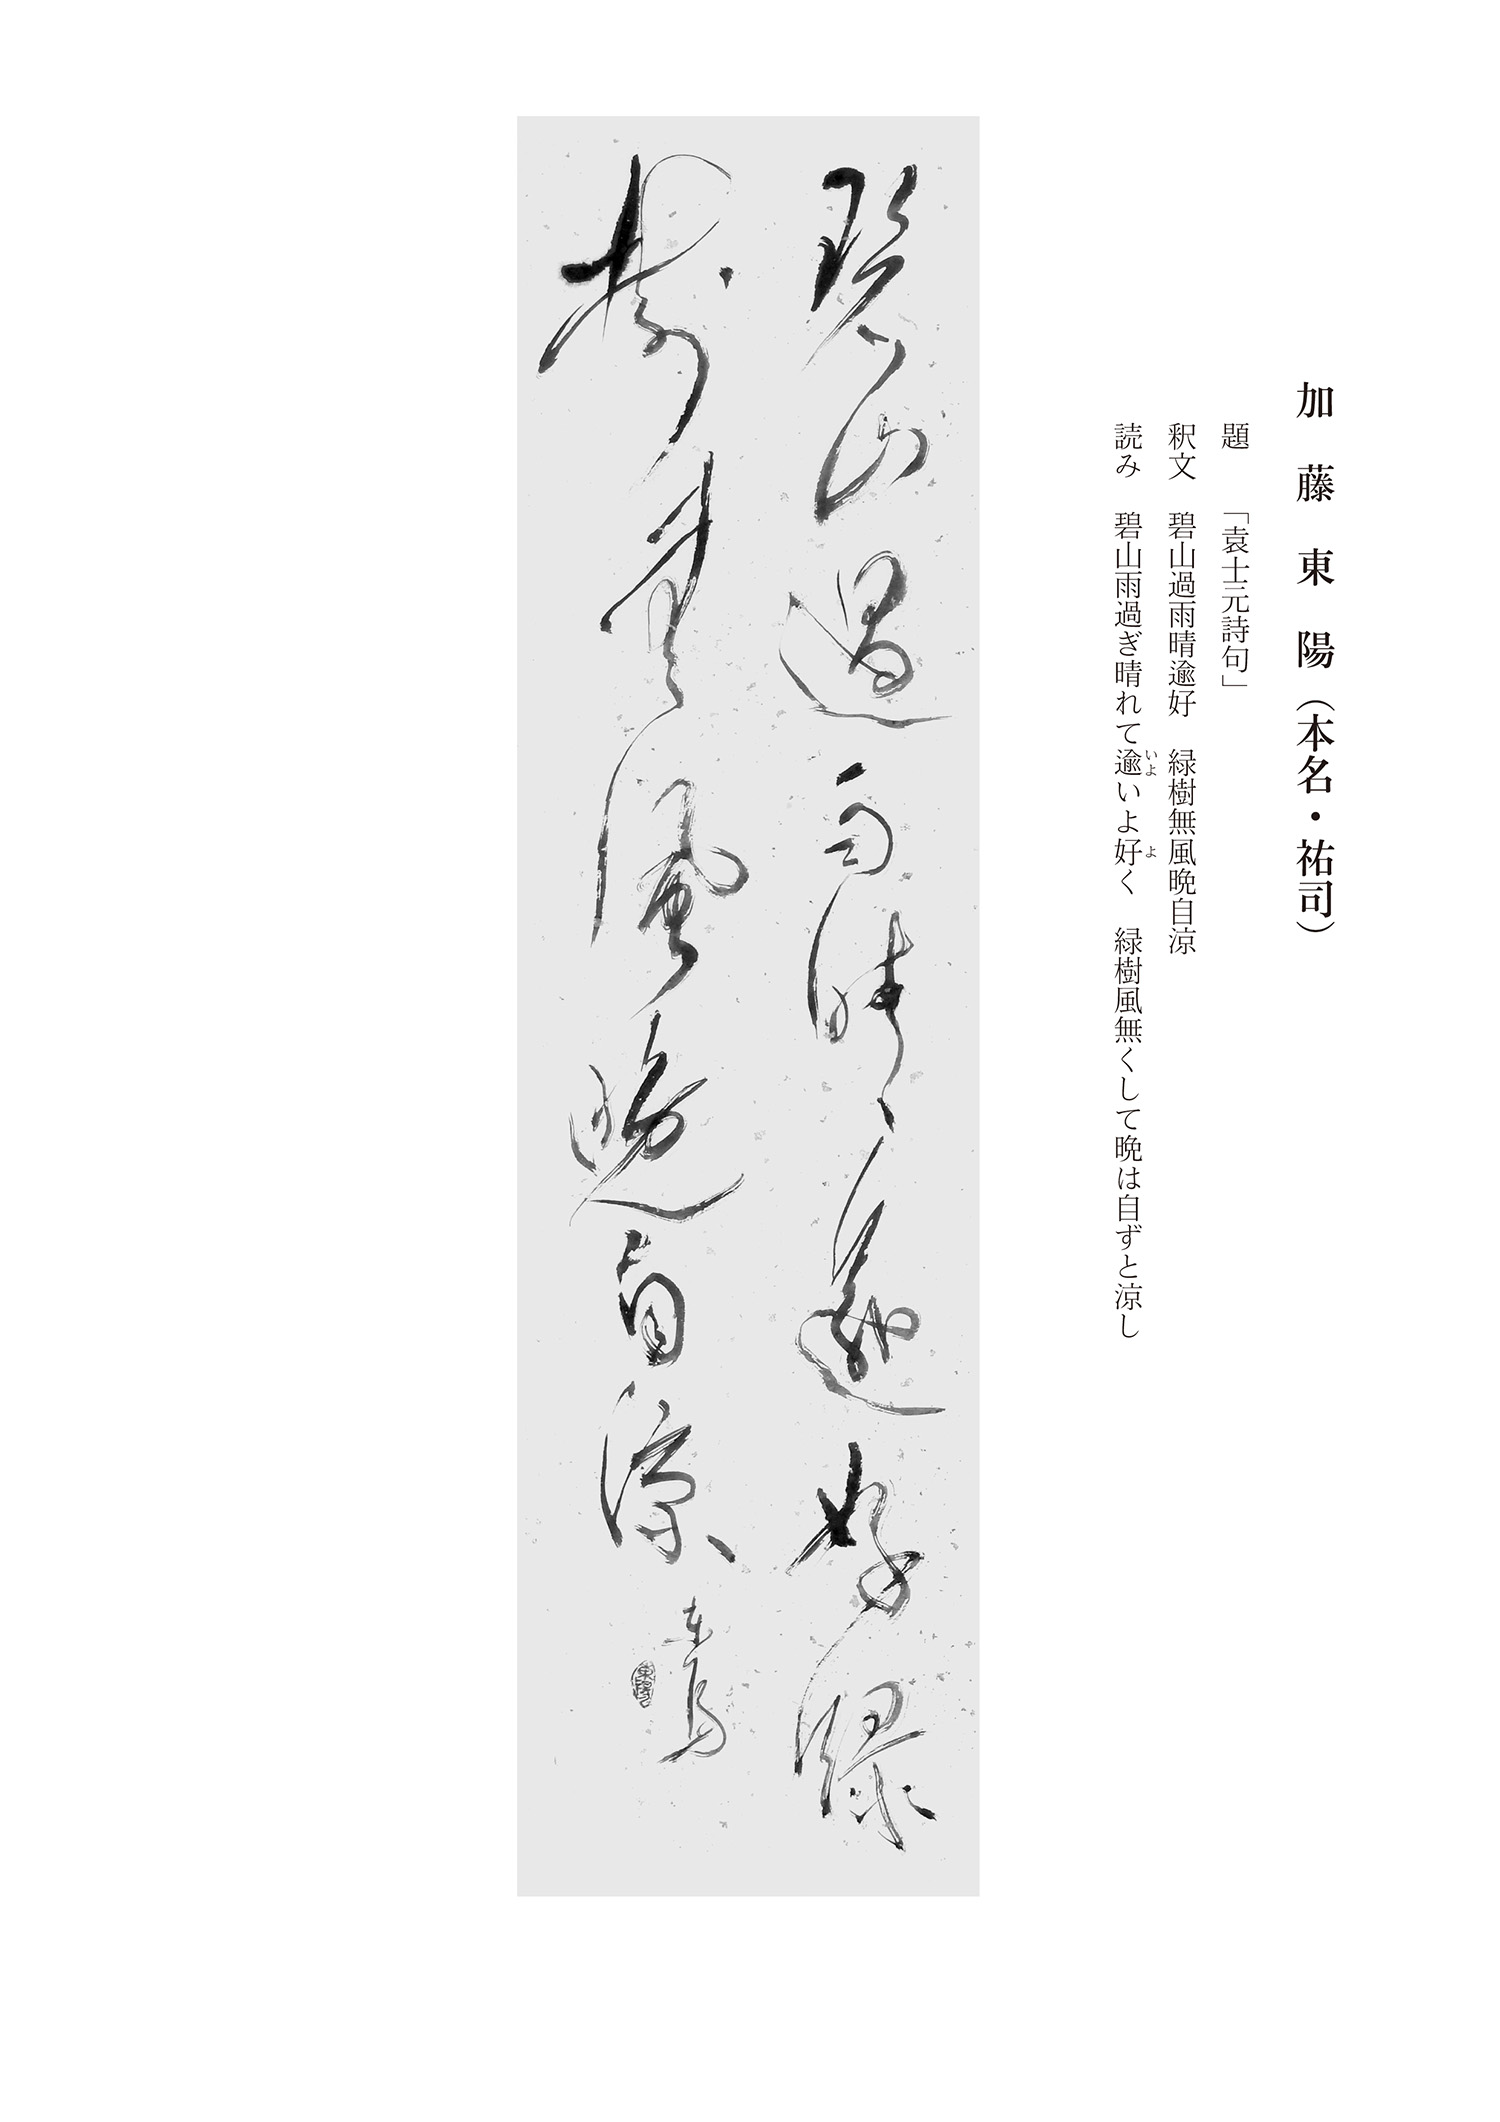 加藤東陽（本名・祐司）
題　「袁士元詩句」
釈文　碧山過雨晴逾好　緑樹無風晩自涼
読み　碧山雨過ぎ晴れて逾いよ好く　緑樹風無くして晩は自ずと涼し
いよ
よ
碧山過雨晴逾好緑
樹無風晩自涼
東陽
東陽